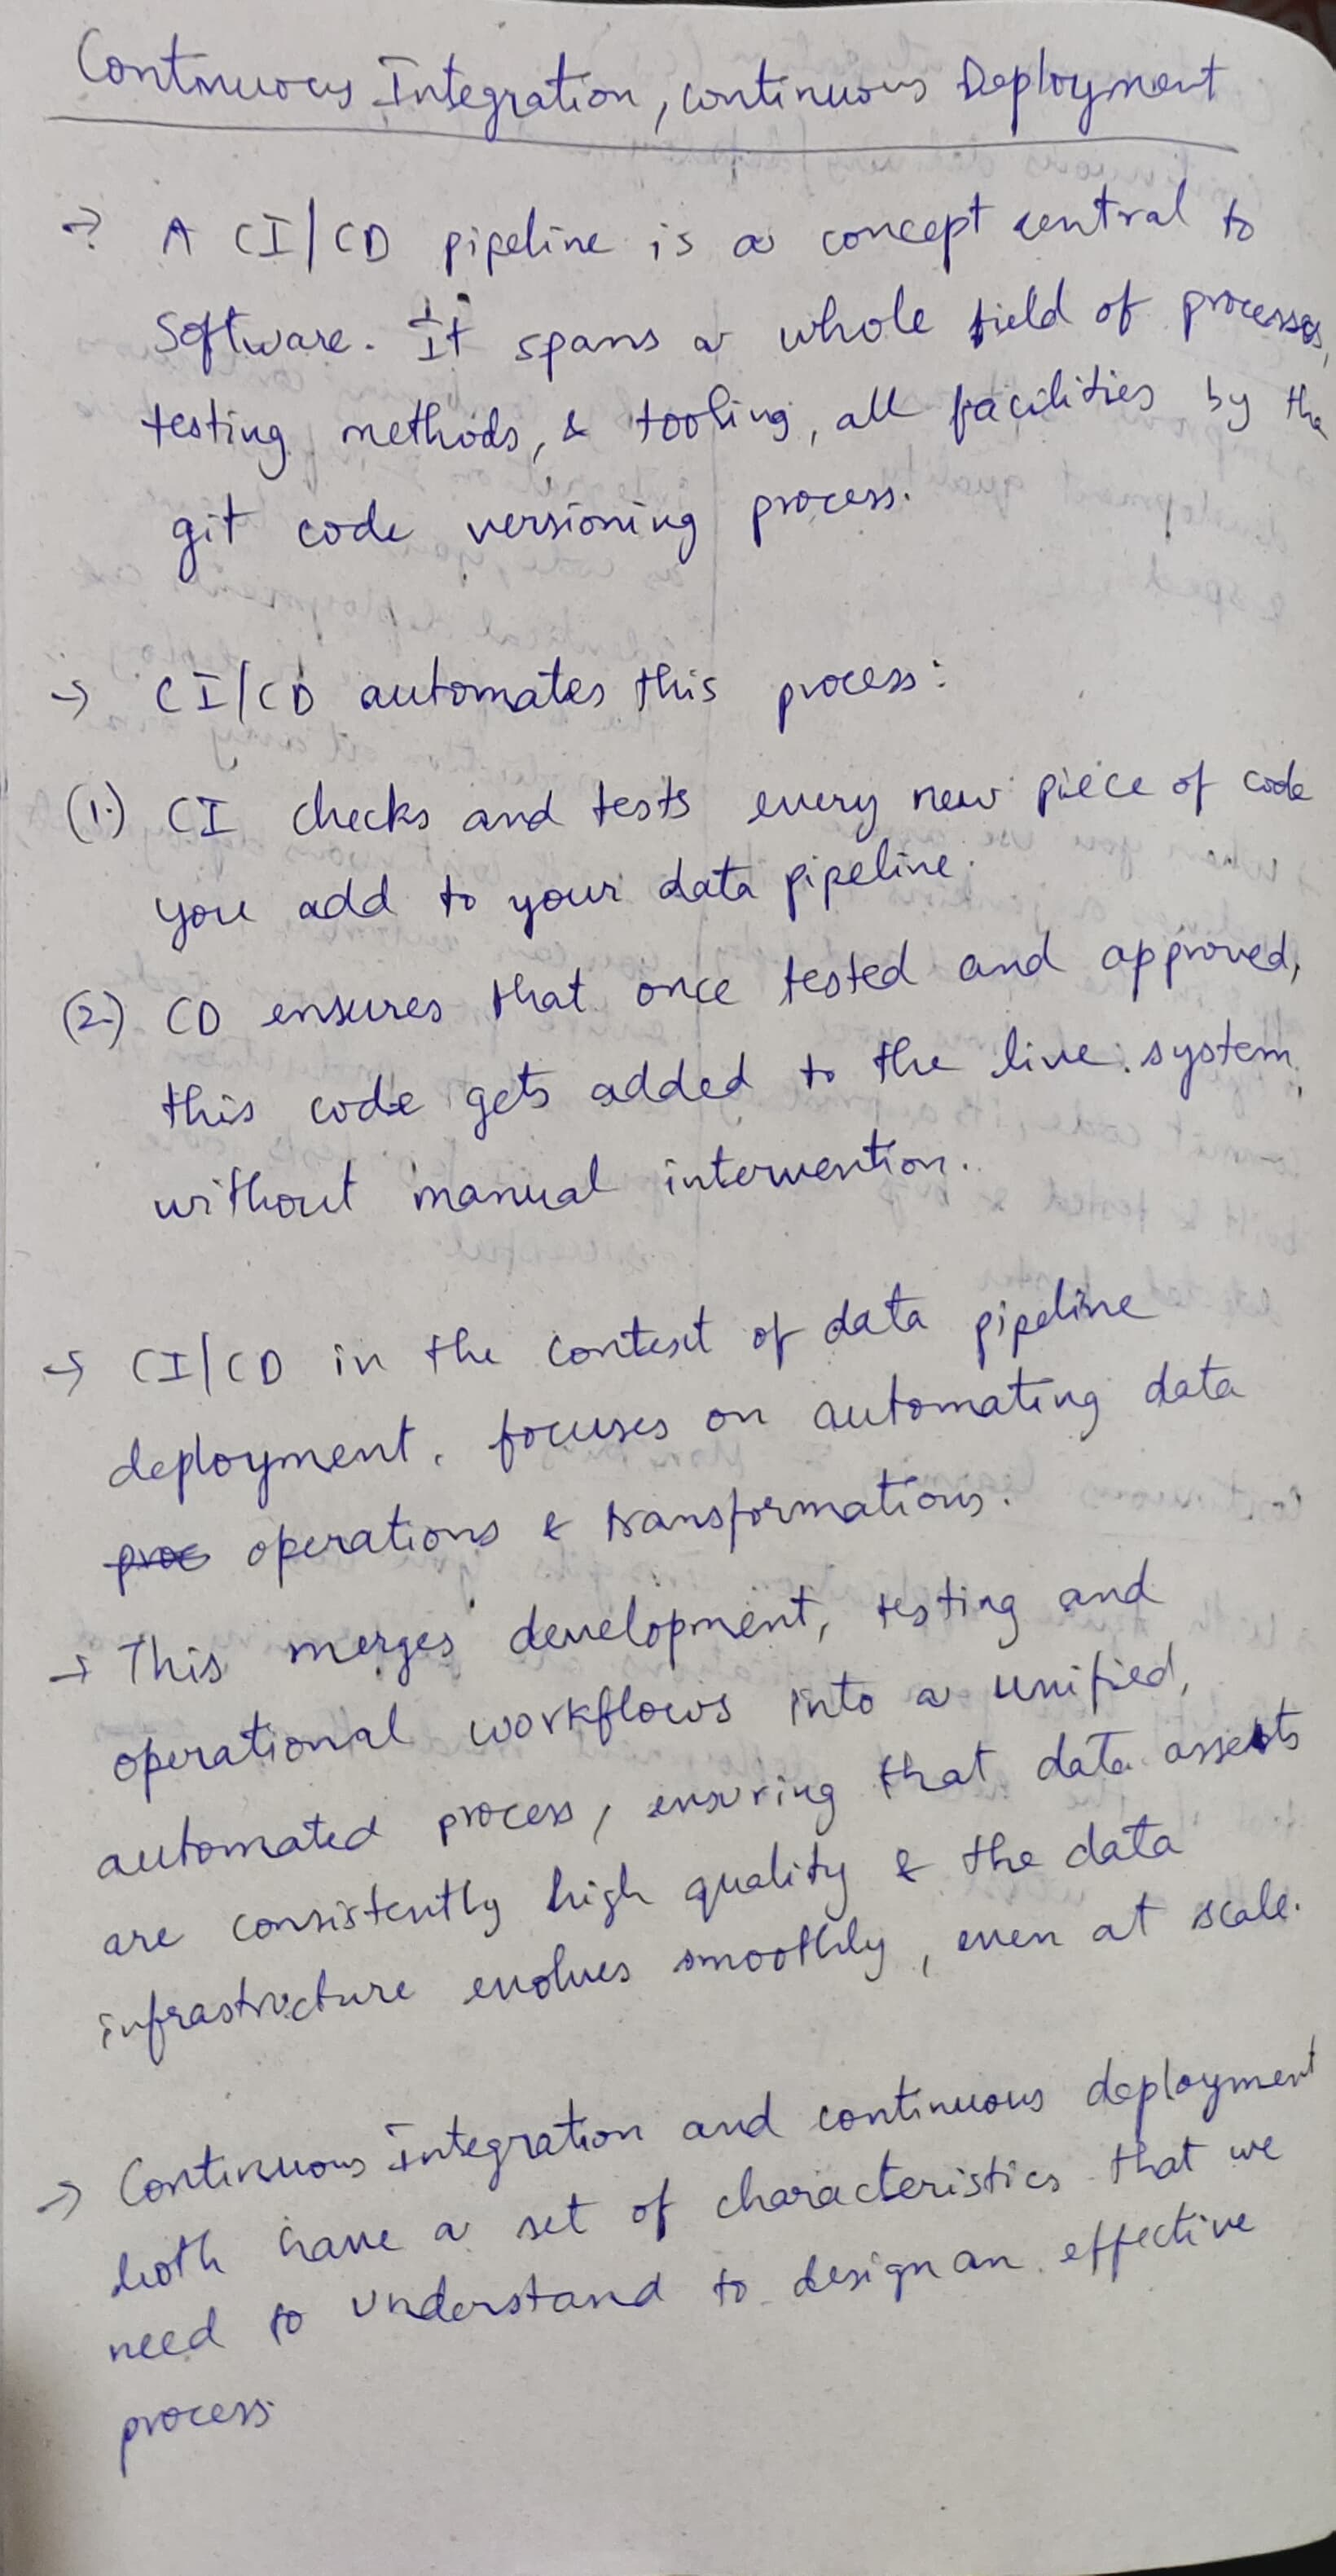 Continuous Integration, continuous Deployment
→ A CI/CD pipeline is a concept central to
Software. It spans a whole field of processes,
testing methods, & tooling, all facilities by the
git code versioning process.
→ CI/CD automates this process:
(1.) CI checks and tests every new piece of code
you add to your data pipeline.
(2.) CD ensures that once tested and approved,
this code gets added to the live system,
without manual intervention.
→ CI/CD in the context of data pipeline
deployment, focuses on automating data
operations & transformations.
→ This merges development, testing and
operational workflows into a unified,
automated process, ensuring that data assests
are consistently high quality & the data
infrastructure evolves smoothly, even at scale.
→ Continuous Integration and continuous deployment
both have a set of characteristics that we
need to understand to design an effective
process.